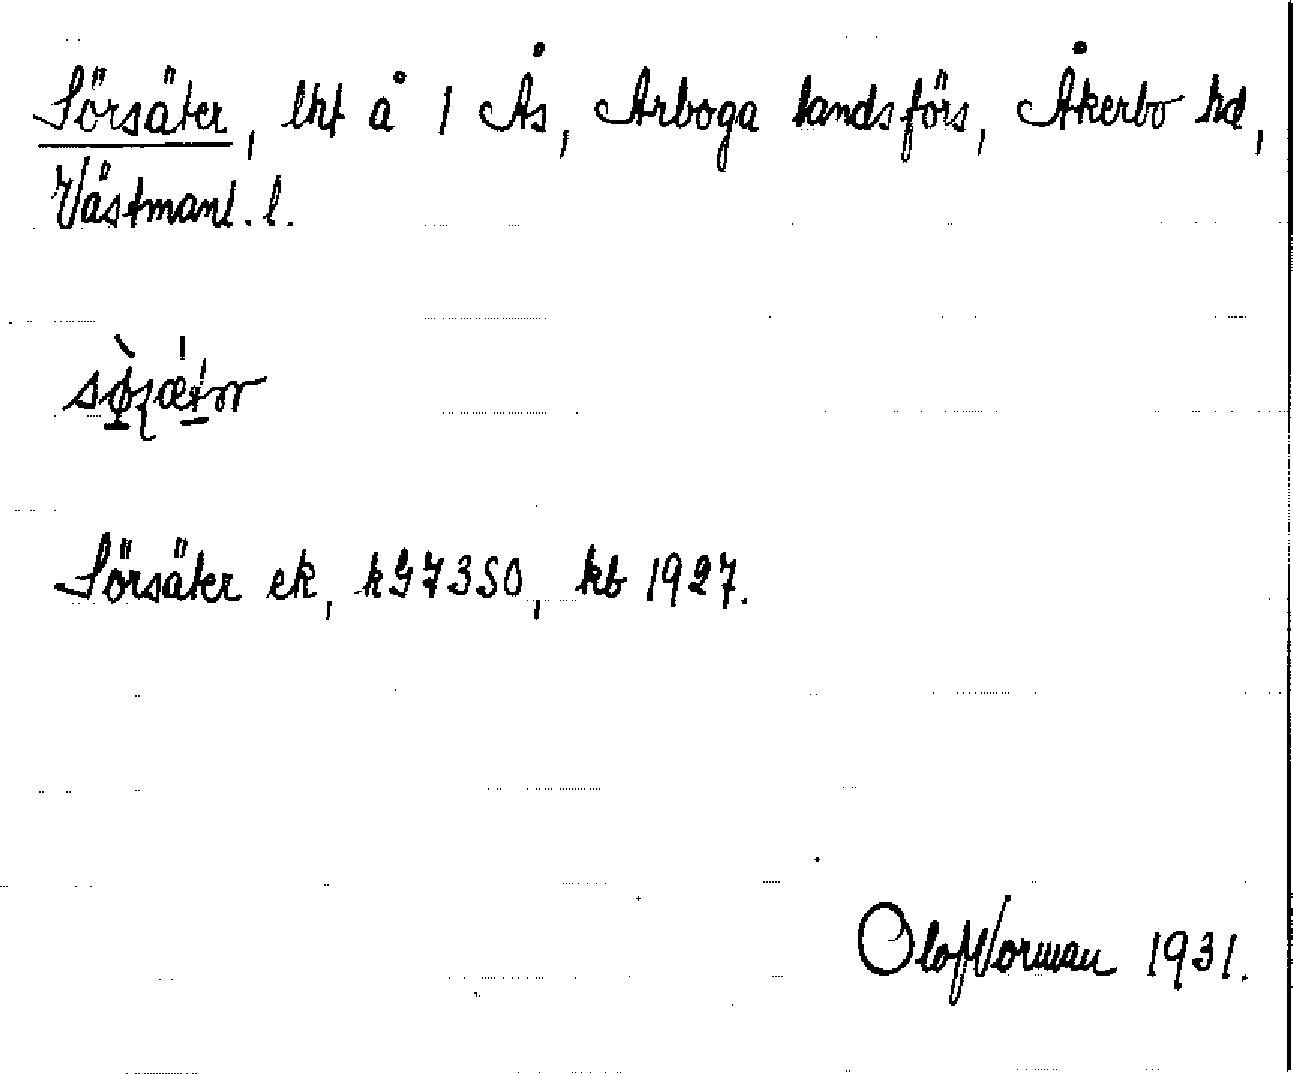 Sörsäter, lht å 1 Ås, Arboga landsförs, Åkerbo hd,
Västmanl. l.
Sörsäter ek, kb 1927.
Olof Norman 1931.